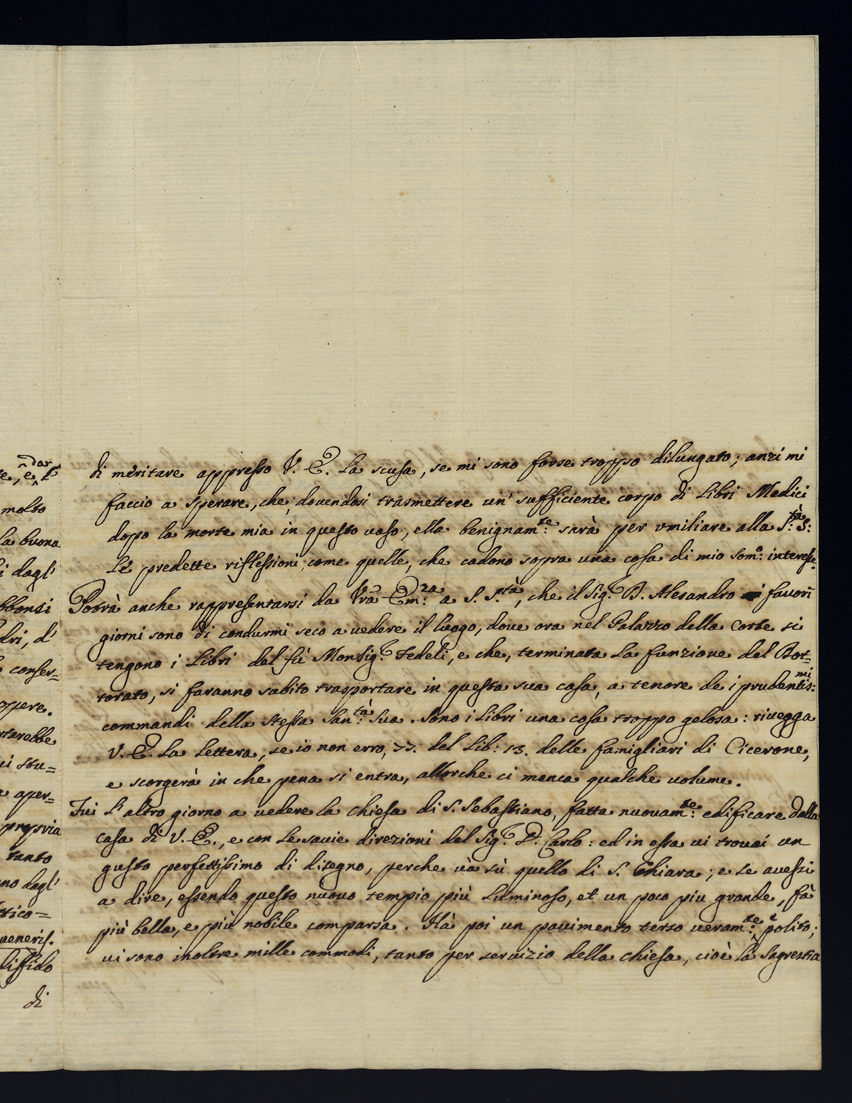 di meritare appresso V. E. la scusa, se mi sono forse troppo dilungato; anzi mi
faccio a sperare, che, dovendosi trasmettere un' sufficiente corpo di Libri Medici
dopo la morte mia in questo vaso, ella benignam.te sarà per vmiliare alla S.tà S:
Le predette riflessioni, come quelle, che cadono sopra una cosa di mio som.o interesse.
Potrà anche rappresentarsi da Vra Em.za a S. S.tà, che il Sig.r B. Alesandro favorì
giorni sono di condurmi seco a vedere il luogo, dove ora nel Palazzo della Corte si
tengono i Libri del fù Monsig.r Fedeli, e che, terminata la funzione del Dot=
torato, si faranno subito trasportare in questa sua casa, a tenore de i prudentis.mi
commandi della stessa San.tà Sua. Sono i Libri una cosa troppo gelosa: rivegga
V. E. la Lettera, se io non erro, 77. del Lib: 13. delle famigliari di Cicerone,
e scorgerà in che pena si entra, allorche ci manca qualche volume.
Fui l'altro giorno a vedere la Chiesa di S. Sebastiano, fatta nuovam.te edificare dalla
casa di V. E., e con le savie direzioni del Sig.r D. Carlo: ed in essa vi trovai un
gusto perfettissimo di disegno, perche và sù quello di S. Chiara; e se avessi
a dire, essendo questo nuovo tempio più Luminoso, et un poco piu grande, fà
più bella, e più nobile comparsa. Hà poi un pavimento terso veram.te e polito;
vi sono inoltre mille commodi, tanto per servizio della Chiesa, cioè la Sagrestia
dar
molto
la buona
i dagl'
dri, d'
conser=
stu=
aper=
propria
tanto
no degl'
di